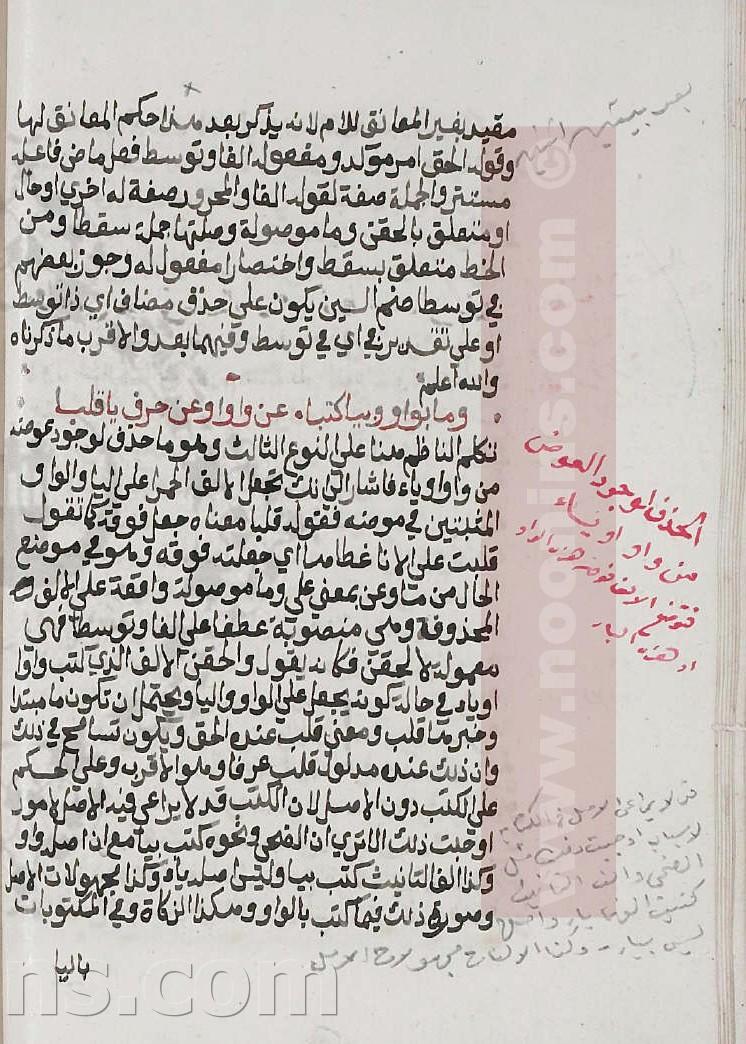 مقيد بغير المعانق للام لانه يذكر بعد هذا حكم المعانق لها
وقوله الحق امر موكد ومفعوله الفا وتوسط فعل ماض فاعله
مستتر والجملة صفة لقوله الفا والمجرور صفة له اخري او حال
او متعلق بالحقن وما موصولة وصلتها جملة سقط ومن
الخط متعلق بسقط واختصارا مفعول له وجوز بعضهم
في توسطا ضم السين يكون علي حذف مضاف اي ذا توسط
او علي تقدير في اي في توسط وفيهما بعد والاقرب ما ذكرناه
والله اعلم
وما بواو وبيا كتبا عن واو او عن حرف يا قلبا
تكلم الناظم هنا علي النوع الثالث وهو ما حذف لوجود عوضه
من واو او ياء فاشار الي انك تجعل الالف الحمرا علي اليا والواو
المثبتين في موضعه فقوله قلبا معناه جعل فوقه كما تقول
قلبت علي الانا غطا مدا اي جعلته فوقه وهو في موضع
الحال من ما وعن بمعني علي وما موصولة واقعة علي الالف
المحذوفة وهي منصوبة عطفا علي الفا وتوسطا فهي
معمولة لالحقن فكانه يقول والحقن الالف الذي كتب واوا
او ياء في حالة كونه يجعل علي الواو واليا ويحتمل ان تكون ما مبتدا
وخبرها قلب ومعني قلب عنده الحق ويكون تسامح في ذلك
وان ذلك عنده مدلول قلب عرفا وهو الاقرب وعلي الحكم
علي الكتب دون الاصل لان الكتب قد لا يراعي فيه الاصل لامور
اوجبت ذلك الا تري ان الضحي ونحوه كتب بيا مع ان اصله واو
وكذا الف التانيث كتب بيا وليس اصله ياء وكذا مجهولات الاصل
وصورة ذلك فيما كتب بالواو هكذا الزكاة وفي المكتوبات
باليا
الحذف لوجود العوض
من واو او ياء
فتوضع الالف فوق هذه الواو
او هذه اليا
قد لا يراعي الاصل في الكتابة
لاسباب اوجبت ذلك مثل
الضحي والف التانيث
www.noorlhs.com ©
ns.com